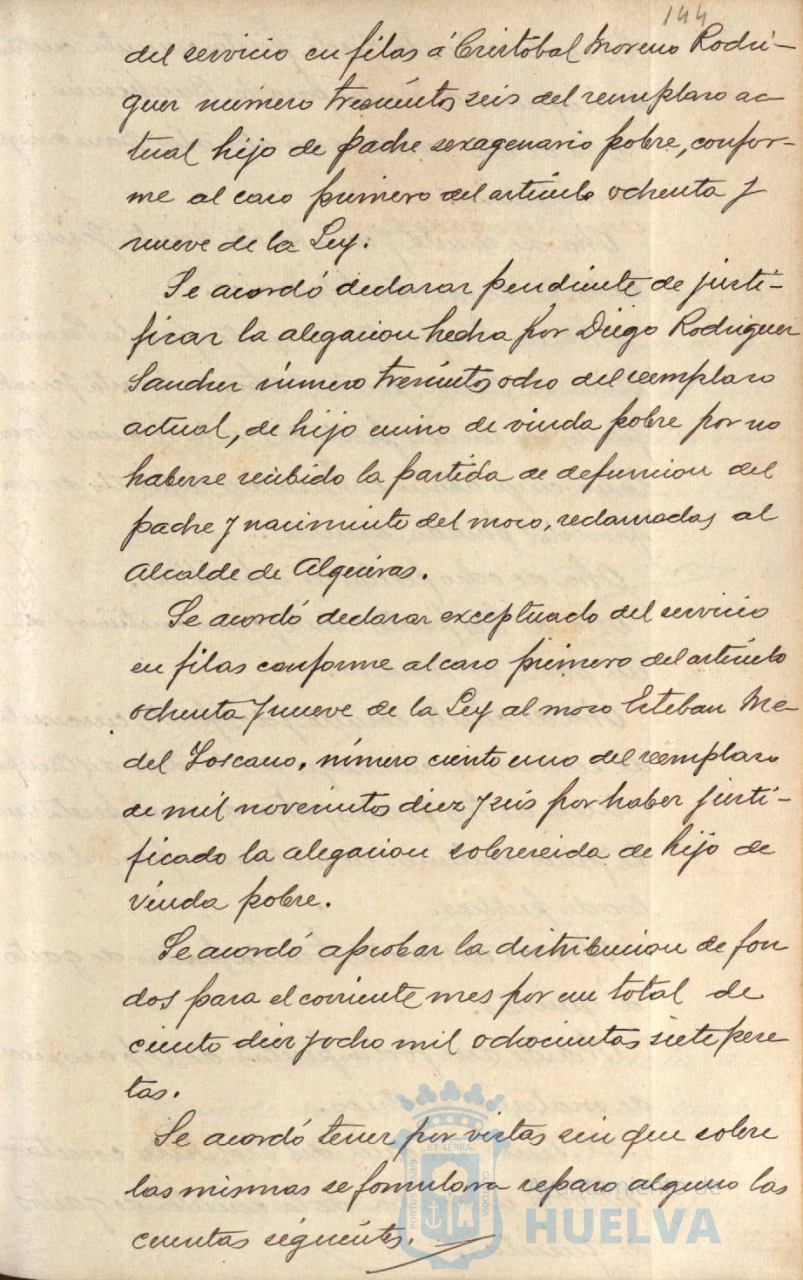 144
del servicio en filas á Cristobal Moreno Rodri-
guez número trescientos seis del remplazo ac-
tual hijo de padre sexagenario pobre, confor-
me al caso primero del artículo ochenta y
nueve de la Ley.
Se acordó declarar pendiente de justi-
ficar la alegacion hecha por Diego Rodriguez
Sanchez número trescientos ocho del reemplazo
actual, de hijo único de viuda pobre por no
haberse recibido la partida de defuncion del
padre y nacimiento del mozo, reclamadas al
Alcalde de Algeciras.
Se acordó declarar exceptuado del servicio
en filas conforme al caso primero del artículo
ochenta y nueve de la Ley al mozo Esteban Me-
del Toscano, número ciento uno del reemplazo
de mil novecientos diez y seis por haber justi-
ficado la alegacion sobreveida de hijo de
viuda pobre.
Se acordó aprobar la distribucion de fon
dos para el corriente mes por un total de
ciento diez y ocho mil ochocientas siete pese
tas.
Se acordó tener por vistas sin que sobre
las mismas se formulara reparo alguno las
cuentas siguientes.
HUELVA